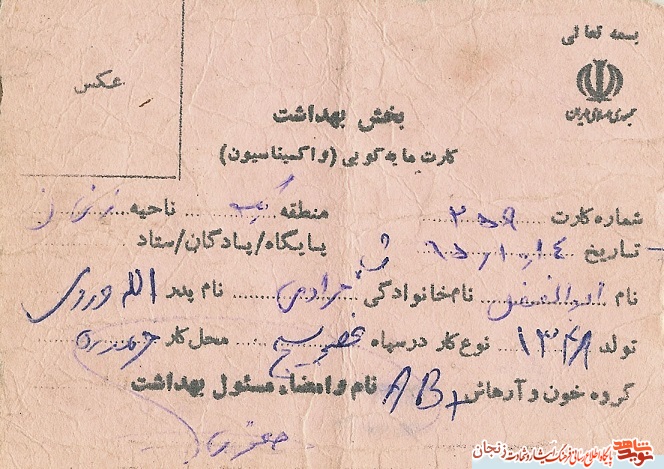 بسمه تعالی
جمهوری اسلامی ایران
عکس
بخش بهداشت
کارت مایه کوبی (واکسیناسیون)
شماره کارت منطقه ناحیه زنجان
تاریخ پایگاه/پادگان/ستاد
نام ابوالفضل نام خانوادگی نام پدر الله وردی
تولد ۱۳۴۸ نوع کار در سپاه بسیج محل کار
گروه خون و آرهاش AB+ نام و امضاء مسئول بهداشت
نوید شاهد
پایگاه اطلاع رسانی فرهنگ ایثار و شهادت زنجان